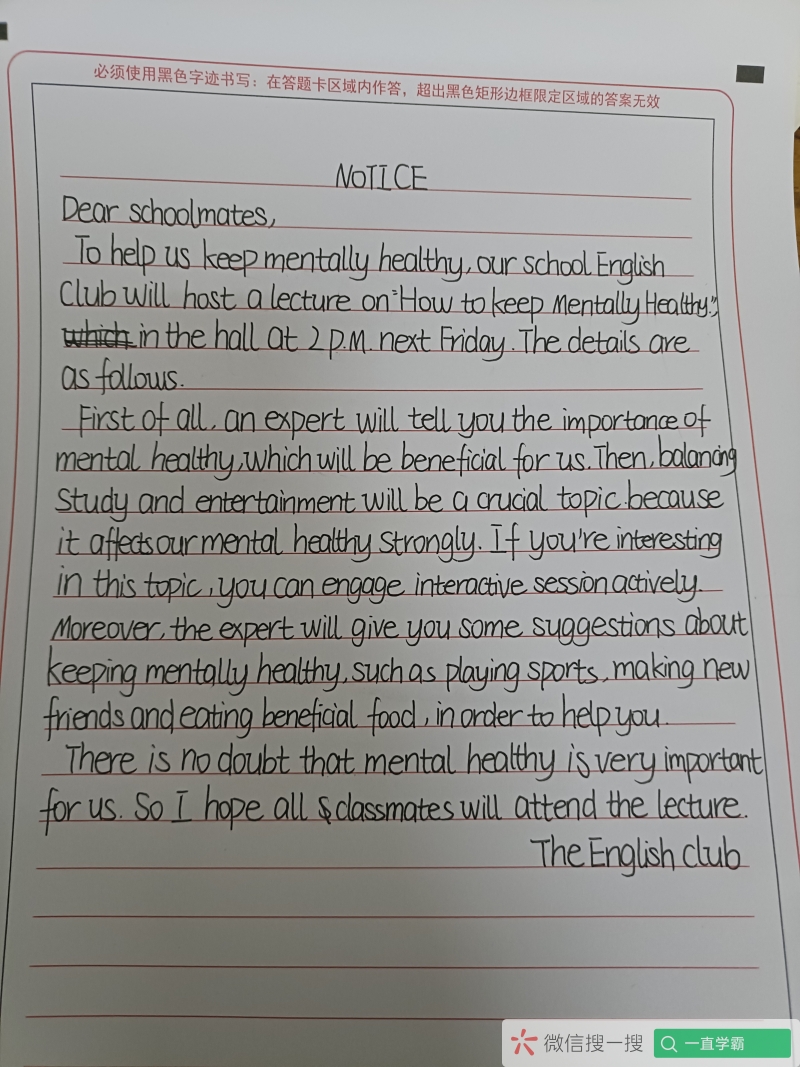 必须使用黑色字迹书写：在答题卡区域内作答，超出黑色矩形边框限定区域的答案无效
NOTICE
Dear schoolmates,
To help us keep mentally healthy, our school English
Club will host a lecture on "How to keep Mentally Healthy."
which in the hall at 2 P.M. next Friday. The details are
as follows.
First of all, an expert will tell you the importance of
mental healthy, which will be beneficial for us. Then, balancing
study and entertainment will be a crucial topic because
it affects our mental healthy strongly. If you're interesting
in this topic, you can engage interactive session actively.
Moreover, the expert will give you some suggestions about
keeping mentally healthy, such as playing sports, making new
friends and eating beneficial food, in order to help you.
There is no doubt that mental healthy is very important
for us. So I hope all classmates will attend the lecture.
The English club
微信搜一搜
一直学霸